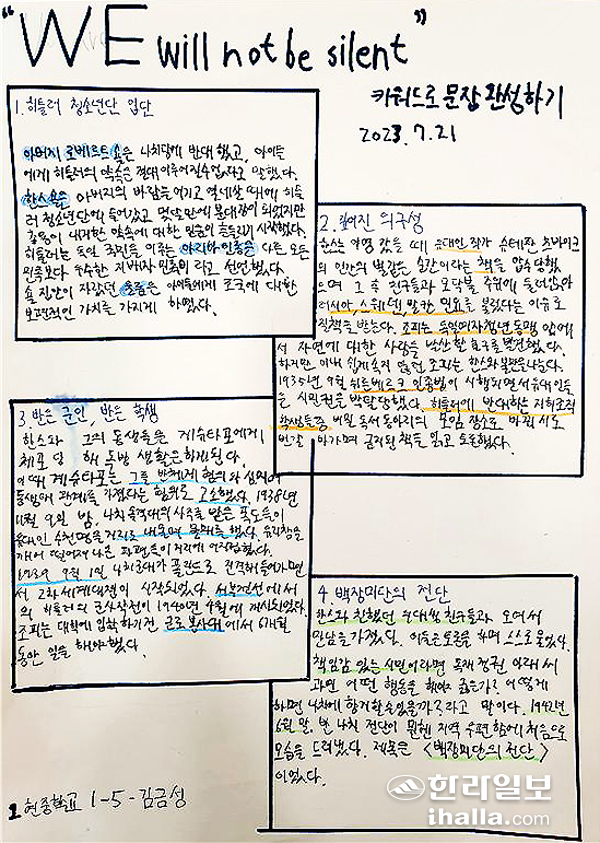 "WE will not be silent"
키워드로 문장 완성하기
2023.7.21
1. 히틀러 청소년단 입단
아버지 로베르트 숄은 나치당에 반대했고, 아이들
에게 히틀러의 약속은 절대 이루어질 수 없다고 말했다.
한스 숄은 아버지의 바람을 어기고 열세살 때에 히틀
러 청소년단에 들어갔고 몇달만에 분대장이 되었지만
총통이 내세운 약속에 대한 믿음이 흔들리기 시작했다.
히틀러는 독일 국민을 이루는 아리아인종은 다른 모든
민족보다 우수한 지배자 민족이라고 선언했다.
숄 집안이 자랐던 울름은 아이들에게 조국에 대한
보편적인 가치를 가지게 하였다.
2. 깊어진 의구심
한스는 야영 갔을 때 유대인 작가 슈테판 츠바이크
의 인간의 빛나는 순간이라는 책을 압수당했
으며 그 후 친구들과 모닥불 주위에 둘러앉아
러시아, 스웨덴, 발칸 민요를 불렀다는 이유로
직책을 받는다. 조피는 독일여자청년동맹 안에
서 자연에 대한 사랑을 발산할 탈출구를 발견했다.
하지만 이내 쉽게 소피 않던 조피는 한스와 불만을 나눈다.
1935년 9월 뉘른베르크 인종법이 시행되면서 유대인들
을 시민권을 박탈당했다. 히틀러에 반대하는 지하조직
학생들은 비밀 독서 동아리의 모임 장소도 마치 시도
번갈아가며 금지된 책을 읽고 토론했다.
3. 반은 군인, 반은 학생
한스와 그의 동생들은 게슈타포에게
체포 당해 독방 생활을 하게 된다.
이때 게슈타포는 그를 반체제 혐의와 십대의
동성애 관계를 가졌다는 혐의로 고소했다. 1938년
11월 9일 밤, 나치 돌격대의 사주를 받은 폭도들이
유대인 수천명을 거리로 내몰며 문제를 했다. 유리창을
깨어 떨어져 나온 파편들이 거리에 어지럽혔다.
1939 9월 1일 나치군대가 폴란드로 진격해 들어가면
서 2차 세계대전이 시작되었다. 서부전선에서
의 히틀러의 군사작전이 1940년 4월에 개시되었다.
조피는 대학에 입학하기 전 근로봉사대에서 6개월
동안 일을 해야했다.
4. 백장미단의 전단
한스와 친했던 의대생 친구들과 모여서
만남을 가졌다. 이들은 토론을 하며 스스로 물었다.
책임감 있는 시민이라면 독재 정권 아래서
과연 어떤 행동을 했어야 옳은가? 어떻게
하면 나치에 항거할 수 있을까? 라고 말이다. 1942년
6월 말, 반 나치 전단이 뮌헨 지역 우편함에 처음으로
모습을 드러냈다. 제목은 <백장미단의 전단>
이었다.
현중학교 1-5-김금성
한라일보
ihalla.com